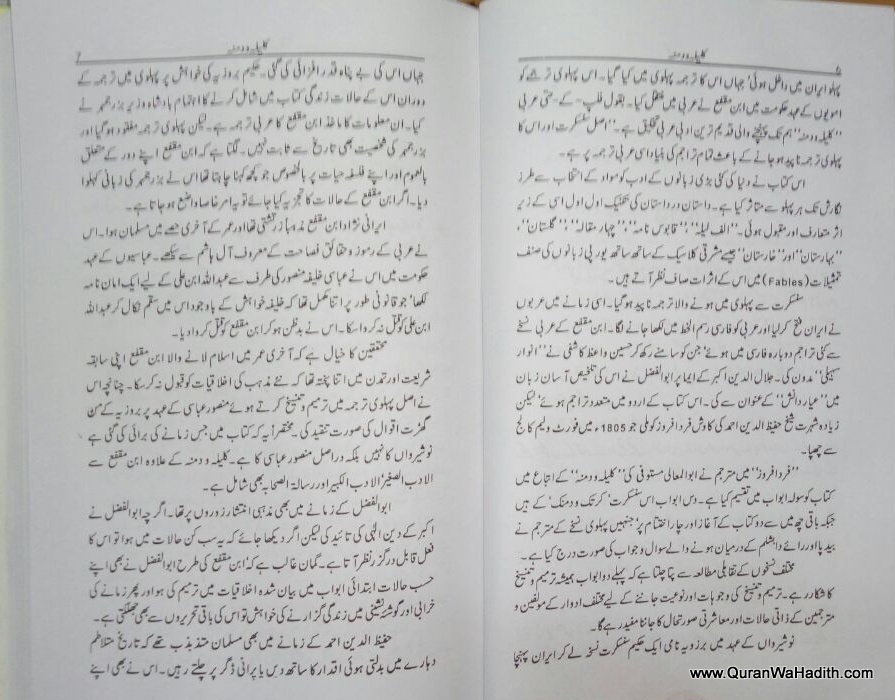 کلیلہ و دمنہ
۶
پہلو ایران میں داخل ہوئی‘ جہاں اس کا ترجمہ پہلوی میں کیا گیا۔ اس پہلوی ترجمے کو
امویوں کے عہد حکومت میں ابن مقفع نے عربی میں منتقل کیا۔ بقول فلپ کے حتی عربی
”کلیلہ و دمنہ“ ہم تک پہنچنے والی قدیم ترین ادبی عربی تخلیق ہے۔” اصل سنسکرت اور اس کا
پہلوی ترجمہ ناپید ہو جانے کے باعث تمام تراجم کی بنیاد اسی عربی ترجمہ پر ہے۔
اس کتاب نے دنیا کی کئی بڑی زبانوں کے ادب کو مواد کے انتخاب سے طرز
نگارش تک ہر پہلو سے متاثر کیا ہے۔ داستان در داستان کی تکنیک اول اول اسی کے زیر
اثر متعارف اور مقبول ہوئی۔ ”الف لیلہ“، ”قابوس نامہ“، ”چہار مقالہ“، ”گلستان“،
”بہارستان“ اور ”خارستان“ جیسے مشرقی کلاسیک کے ساتھ ساتھ یورپی زبانوں کی صنف
تمثیلات (Fables) میں اس کے اثرات صاف نظر آتے ہیں۔
سنسکرت سے پہلوی میں ہونے والا ترجمہ ناپید ہو گیا۔ اسی زمانے میں عربوں
نے ایران فتح کر لیا اور عربی کو فارسی رسم الخط میں لکھا جانے لگا۔ ابن مقفع کے عربی نسخے
سے کئی تراجم دوبارہ فارسی میں ہوئے‘ جن کو سامنے رکھ کر حسین واعظ کاشفی نے ”انوار
سہیلی“ مدون کی۔ جلال الدین اکبر کے ایما پر ابوالفضل نے اس کی تلخیص آسان زبان
میں ”عیار دانش“ کے عنوان سے کی۔ اس کتاب کے اردو میں متعدد تراجم ہوئے‘ لیکن
زیادہ شہرت شیخ حفیظ الدین احمد کی کاوش خرد افروز کو ملی جو 1805ء میں فورٹ ولیم کالج
سے چھپا۔
”خرد افروز“ میں مترجم نے ابوالمعالی مستوفی کی ”کلیلہ و دمنہ“ کے اتباع میں
کتاب کو سولہ ابواب میں تقسیم کیا ہے۔ دس ابواب اس سنسکرت‘ کرتک و دمنک‘ کے ہیں
جبکہ باقی چھ میں سے دو کتاب کے آغاز اور چار اختتام پر‘ جنہیں پہلوی نسخے کے مترجم نے
بیدپا اور رائے دابشلم کے درمیان ہونے والے سوال و جواب کی صورت درج کیا ہے۔
مختلف نسخوں کے تقابلی مطالعہ سے پتا چلتا ہے کہ پہلے دو ابواب ہمیشہ ترمیم و تنسیخ
کا شکار رہے۔ ترمیم و تنسیخ کی وجوہات اور نوعیت جاننے کے لیے مختلف ادوار کے مولفین و
مترجمین کے ذاتی حالات اور معاشرتی صورتحال کا جاننا مفید رہے گا۔
نوشیرواں کے عہد میں برزویہ نامی ایک حکیم سنسکرت نسخہ لے کر ایران پہنچا
کلیلہ و دمنہ
۷
جہاں اس کی بے پناہ قدر افزائی کی گئی۔ حکیم بروزیہ کی خواہش پر پہلوی میں ترجمہ کے
دوران اس کے حالات زندگی کتاب میں شامل کرنے کا اہتمام بادشاہ وزیر بزرجمہر نے
کیا۔ ان معلومات کا ماخذ ابن مقفع کا عربی ترجمہ ہے۔ لیکن پہلوی ترجمہ مفقود ہو گیا اور
بزرجمہر کی شخصیت بھی تاریخ سے ثابت نہیں۔ لگتا ہے کہ ابن مقفع اپنے دور کے متعلق
بالعموم اور اپنے فلسفہ حیات پر بالخصوص جو کچھ کہنا چاہتا تھا اس نے بزرجمہر کی زبانی کہلوا
دیا۔ اگر ابن مقفع کے حالات کا تجزیہ کیا جائے تو یہ امر خاصا واضع ہو جاتا ہے۔
ایرانی نژاد ابن مقفع مذہباً زرتشتی تھا اور عمر کے آخری حصے میں مسلمان ہوا۔ اس
نے عربی کے رموز و حقائق فصاحت کے معروف آل ہاشم سے سیکھے۔ عباسیوں کے عہد
حکومت میں اس نے عباسی خلیفہ منصور کی طرف سے عبداللہ ابن علی کے لیے ایک امان نامہ
لکھا‘ جو قانونی طور پر اتنا مکمل تھا کہ خلیفہ خواہش کے باوجود اس میں سقم نکال کر عبداللہ
ابن علی کو قتل نہ کروا سکا۔ اس نے بدظن ہو کر ابن مقفع کو قتل کروا دیا۔
محققین کا خیال ہے کہ آخری عمر میں اسلام لانے والا ابن مقفع اپنی سابقہ
شریعت اور تمدن میں اتنا پختہ تھا کہ نئے مذہب کی اخلاقیات کو قبول نہ کر سکا۔ چنانچہ اس
نے اصل پہلوی ترجمہ میں ترمیم و تنسیخ کرتے ہوئے منصور عباسی کے عہد پر بروزیہ کے من
گھڑت اقوال کی صورت تنقید کی۔ مختصراً یہ کہ کتاب میں جس زمانے کی برائی کی گئی ہے
نوشیرواں کا نہیں بلکہ دراصل منصور عباسی کا ہے۔ کلیلہ و دمنہ کے علاوہ ابن مقفع سے
الادب الصغیر‘ الادب الکبیر اور رسالۃ الصحابہ بھی شامل ہے۔
ابوالفضل کے زمانے میں بھی مذہبی انتشار زوروں پر تھا۔ اگرچہ ابوالفضل نے
اکبر کے دین الٰہی کی تائید کی لیکن اگر دیکھا جائے کہ یہ سب کن حالات میں ہوا تو اس کا
فعل قابل درگزر نظر آتا ہے۔ گمان غالب ہے کہ ابن مقفع کی طرح ابوالفضل نے بھی اپنے
حسب حالات ابتدائی ابواب میں بیان شدہ اخلاقیات میں ترمیم کی ہو اور پھر زمانے کی
خرابی اور گوشہ نشینی میں زندگی گزارنے کی خواہش تو اس کی باقی تحریروں سے بھی جھلکتی ہے۔
حفیظ الدین احمد کے زمانے میں بھی مسلمان متذبذب تھے کہ تاریخ متلاطم
دھارے میں بدلتی ہوئی اقدار کا ساتھ دیں یا پرانی ڈگر پر چلتے رہیں۔ اس نے بھی اپنے
www.QuranWaHadith.com